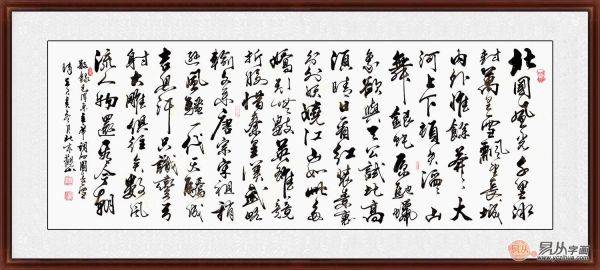 北國風光千里冰
封萬里雪飄望長城
内外惟餘莽々大
河上下頓失滔々山
舞銀蛇原馳蠟
象欲與天公試比高
須晴日看紅裝素裹
分外妖嬈江山如此多
嬌引無數英雄競
折腰惜秦皇漢武略
輸文采唐宗宋祖稍
遜風騷一代天驕成
吉思汗只識彎弓
射大雕俱往矣數風
流人物還看今朝
敬錄毛澤東主席詞沁園春雪
易从字画